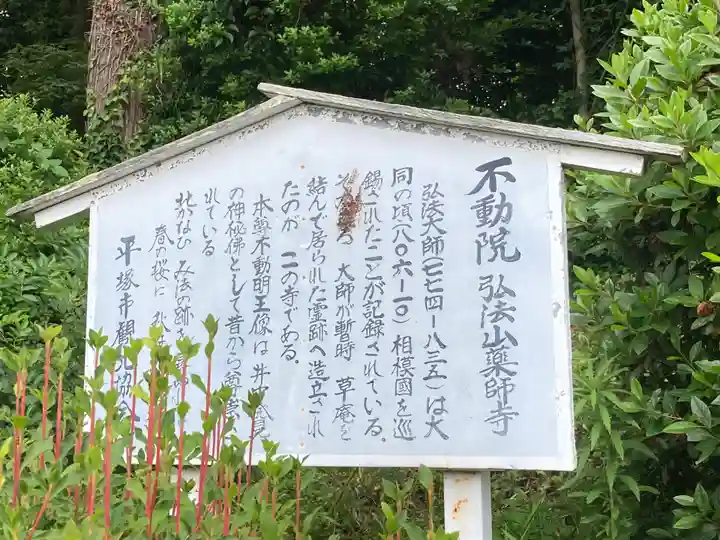 不動院 弘法山薬師寺
弘法大師(七七四ー八三五)は大
同の頃(八〇六ー一〇)相模國を巡
錫されたことが記録されている。
その 大師が暫時 草庵を
結んで居られた霊跡へ造立され
たのが この寺である。
本尊不動明王像は
の神秘佛として昔から
れている
みほの跡
春の桜に
平塚市観光協